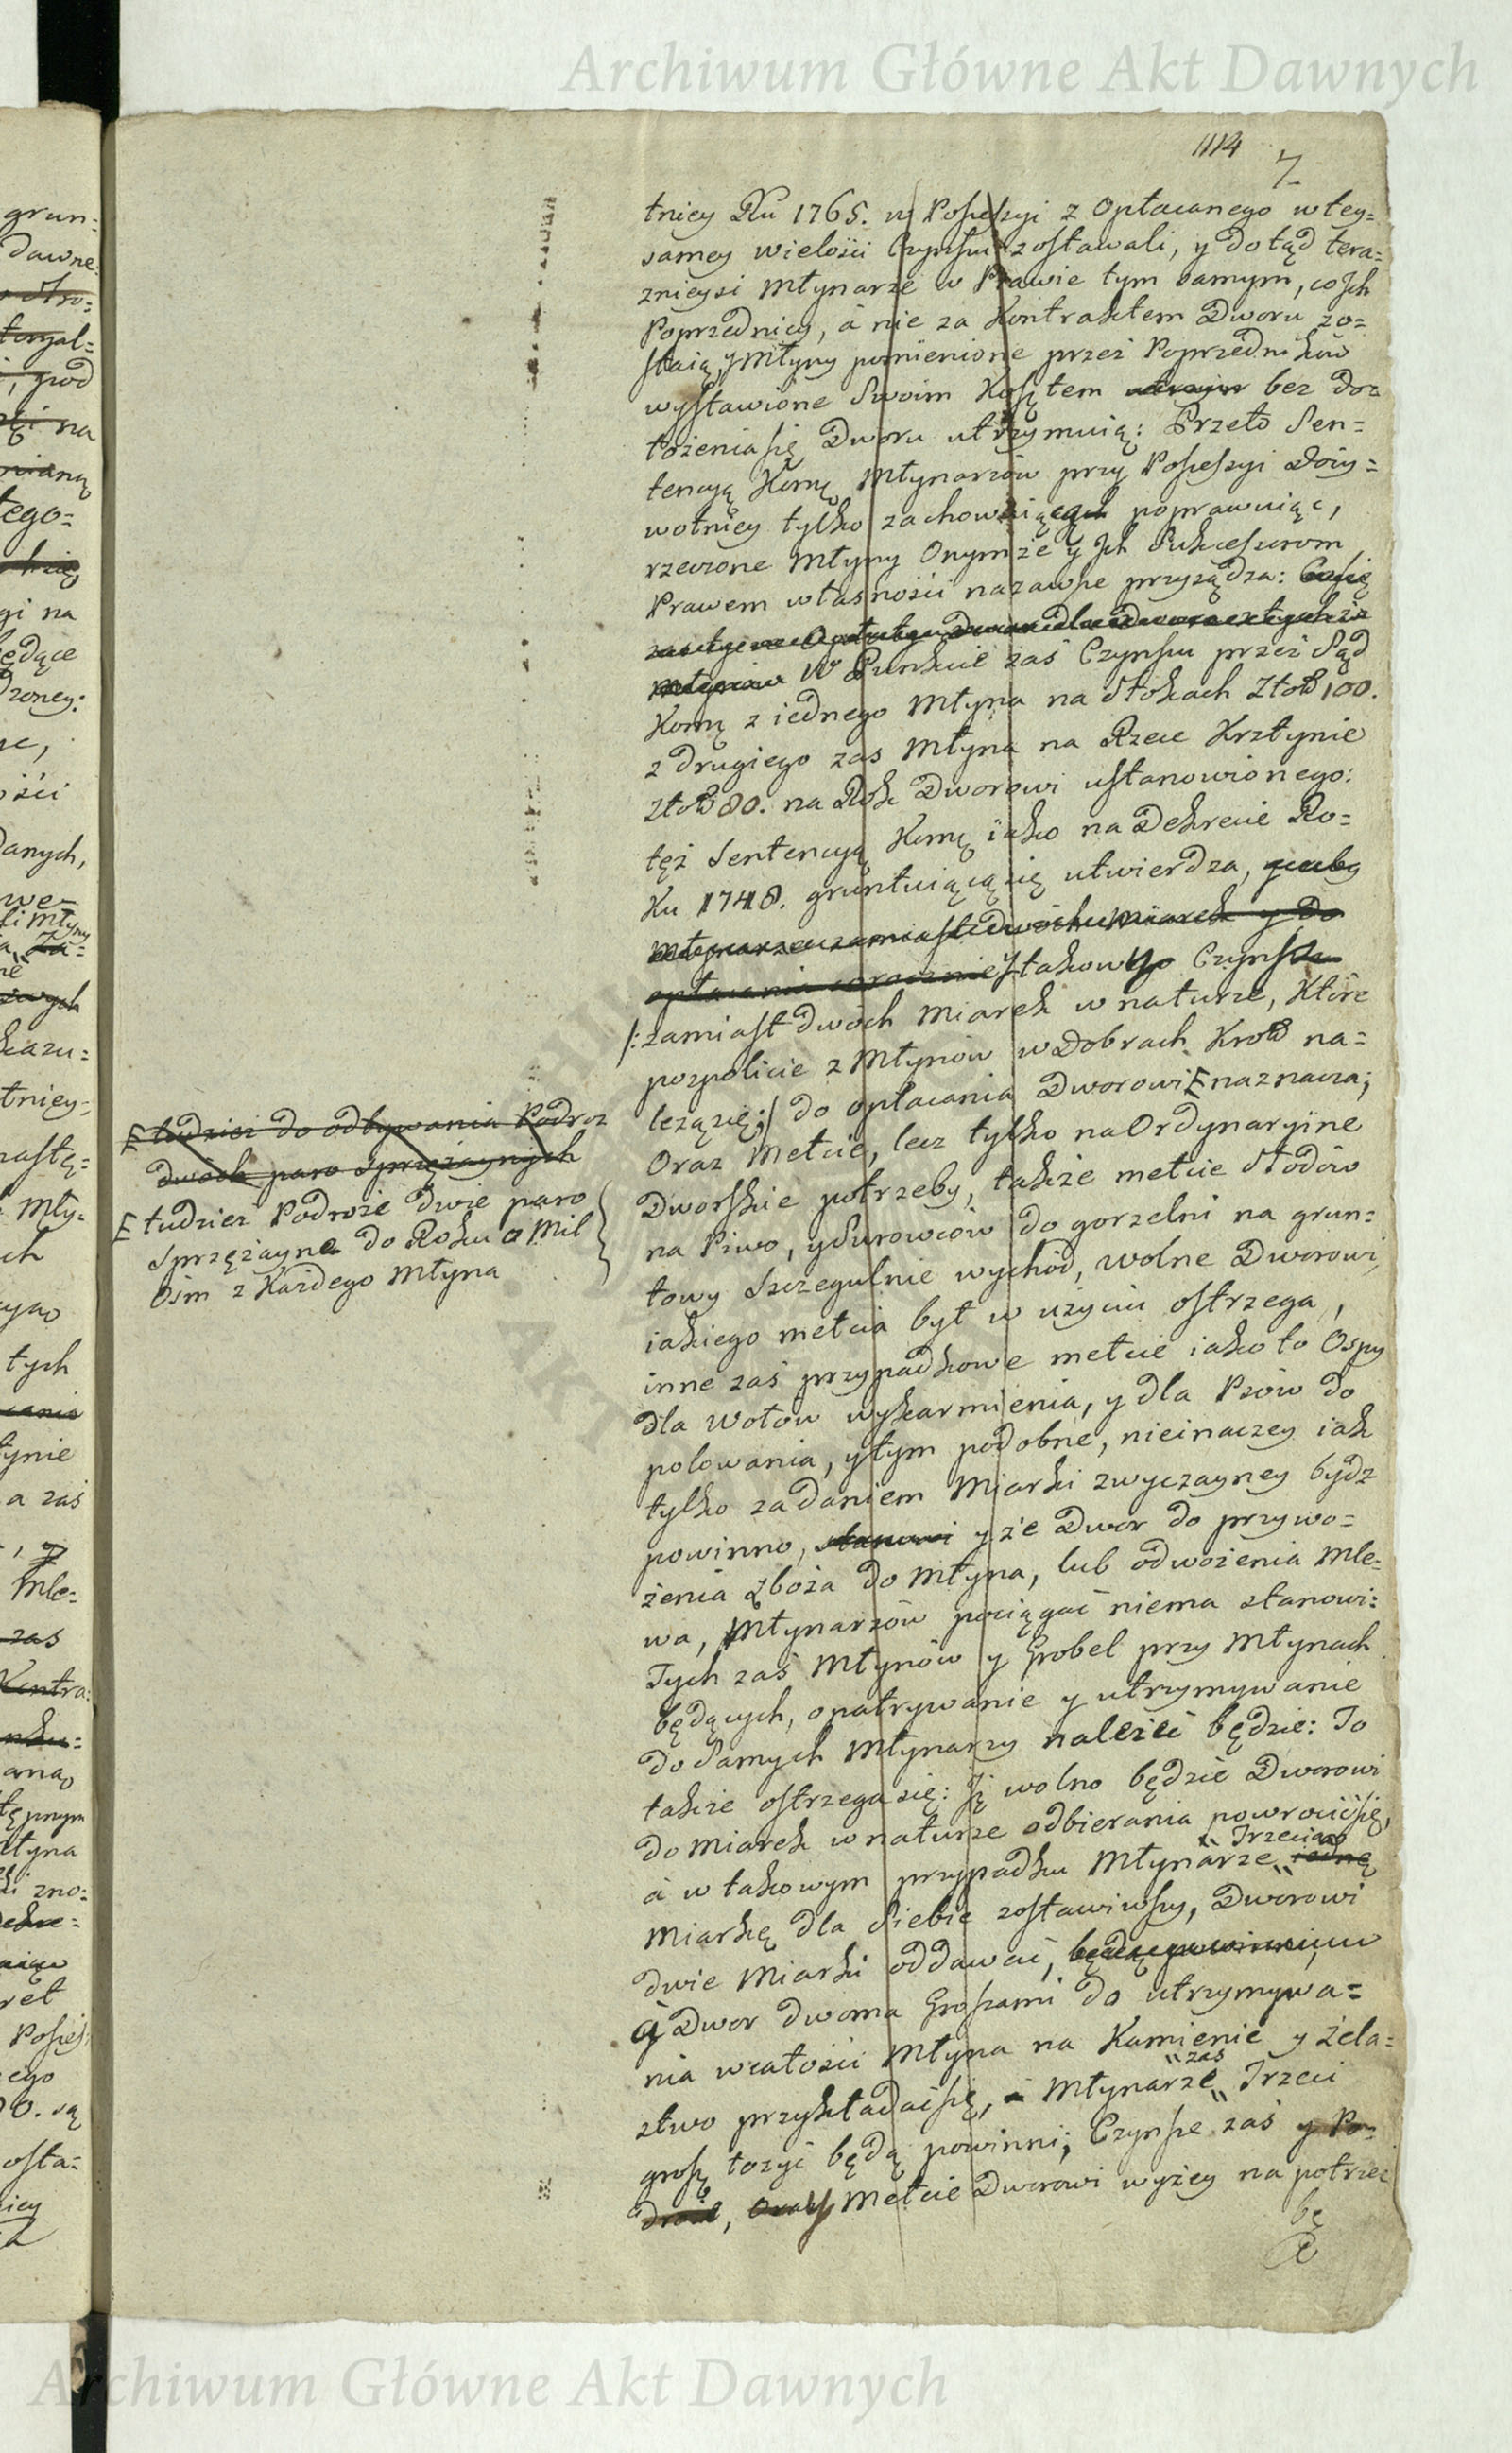 Archiwum Główne Akt Dawnych
1114 7
tniey Ru 1765. w Possessyi z Opłacanego wtey=
samey wielości Czynszu zostawali, y dotąd tera=
znieysi Młynarze w Prawie tym samym, co Ich
Poprzednicy, á nie za Kontraktem Dworu zo=
staią, y Młyny pomienione przez Poprzedników
wystawione Swoim Kosztem bez do=
łożenia się Dworu utrzymuią: Przeto Sen=
tencyą Komą Młynarzów przy Possessyi Doży=
wotniey tylko zachowuiącą poprawuiąc,
rzeczone Młyny Onymże y Ich Sukcessorom
Prawem własności nazawsze przysądza:
W Punkcie zaś Czynszu przez Sąd
Komą z iednego Młyna na Stokach Złot 100.
z drugiego zas Młyna na Rzece Krztynie
złot 80. na Rok Dworowi ustanowionego:
też Sentencyą Komą iako na Dekrecie Ro=
Ku 1748. gruntuiącą się utwierdza,
Młynarze zamiast dwóch Miarek y do
opłacania corocznie Y takowy Czynsz
/: zamiast dwóch Miarek w naturze, Które
pospolicie z Młynów w Dobrach Krol na=
leżą się :/ do opłacania Dworowi F naznacza;
Oraz Mełcie, lecz tylko na Ordynaryine
Dworskie potrzeby, także mełcie Słodów
na Piwo, y Surowców do gorzelni na grun=
towy Szczegulnie wychód, wolne Dworowi
iakiego mełcia był w użyciu ostrzega,
inne zaś przypadkowe mełcie iako to Ospy
dla Wołów wykarmienia, y dla Psów do
polowania, y tym podobne, nieinaczey iak
tylko za daniem Miarki zwyczayney bydz
powinno, stanowi y że Dwor do przywo=
żenia zboża do Młyna, lub odwożenia Mle=
wa, Młynarzów pociągać niema stanowi:
Tych zaś Młynów y Grobel przy Młynach
będących, opatrywanie y utrzymywanie
do Samych Młynarzy należeć będzie: To
także ostrzega się: Iż wolno będzie Dworowi
do Miarek w naturze odbierania powrócić się,
á w takowym przypadku Młynarze Trzecią iednę
Miarkę dla Siebie zostawiwszy, Dworowi
dwie Miarki oddawać, będą powinni,
á Dwor dwoma Groszami do utrzymywa=
nia wcałości Młyna na Kamienie y Żela=
ztwo przykładać się, á Młynarze zas Trzeci
grosz łożyć będą powinni; Czynsze zaś y Po=
droż, Oraz Y Mełcie Dworowi wyżey na potrze
bę
F tudzież do odbywania Podroz
dwóch paro Sprzężaynych
F tudzież Podroże dwie paro
Sprzężayne do Roku o Mil
Ośm z Każdego Młyna
grun=
Dawne
na
tego=
gi na
będące
dzoney:
ości
danych,
we=
Młyny
kazu=
tniey=
nastę=
Mły=
ch
tych
tynie
a zaś
Mle=
zas
Kontra=
tępnym
łyna
zno=
ret
ego
00. są
osta=
Archiwum Główne Akt Dawnych